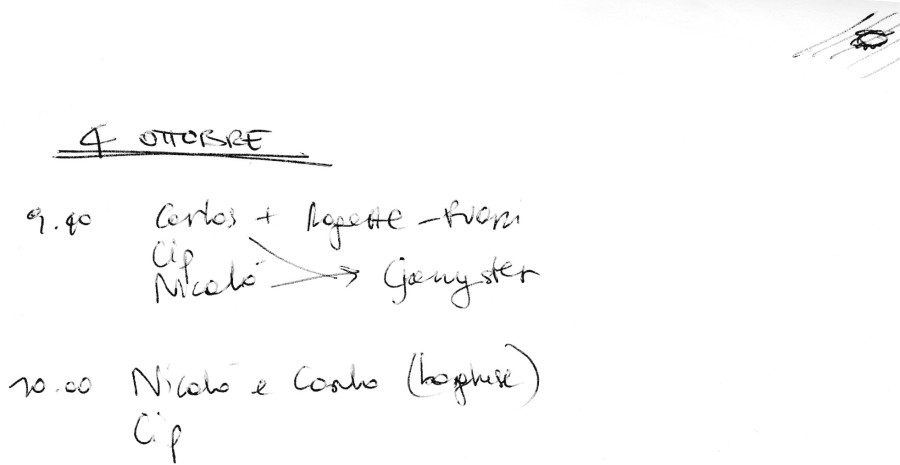 4 OTTOBRE
9.40 Carlos + Ragatte - FUORI
Cip
Nicolò → Gangster
10.00 Nicolò e Carlo (borghese)
Cip